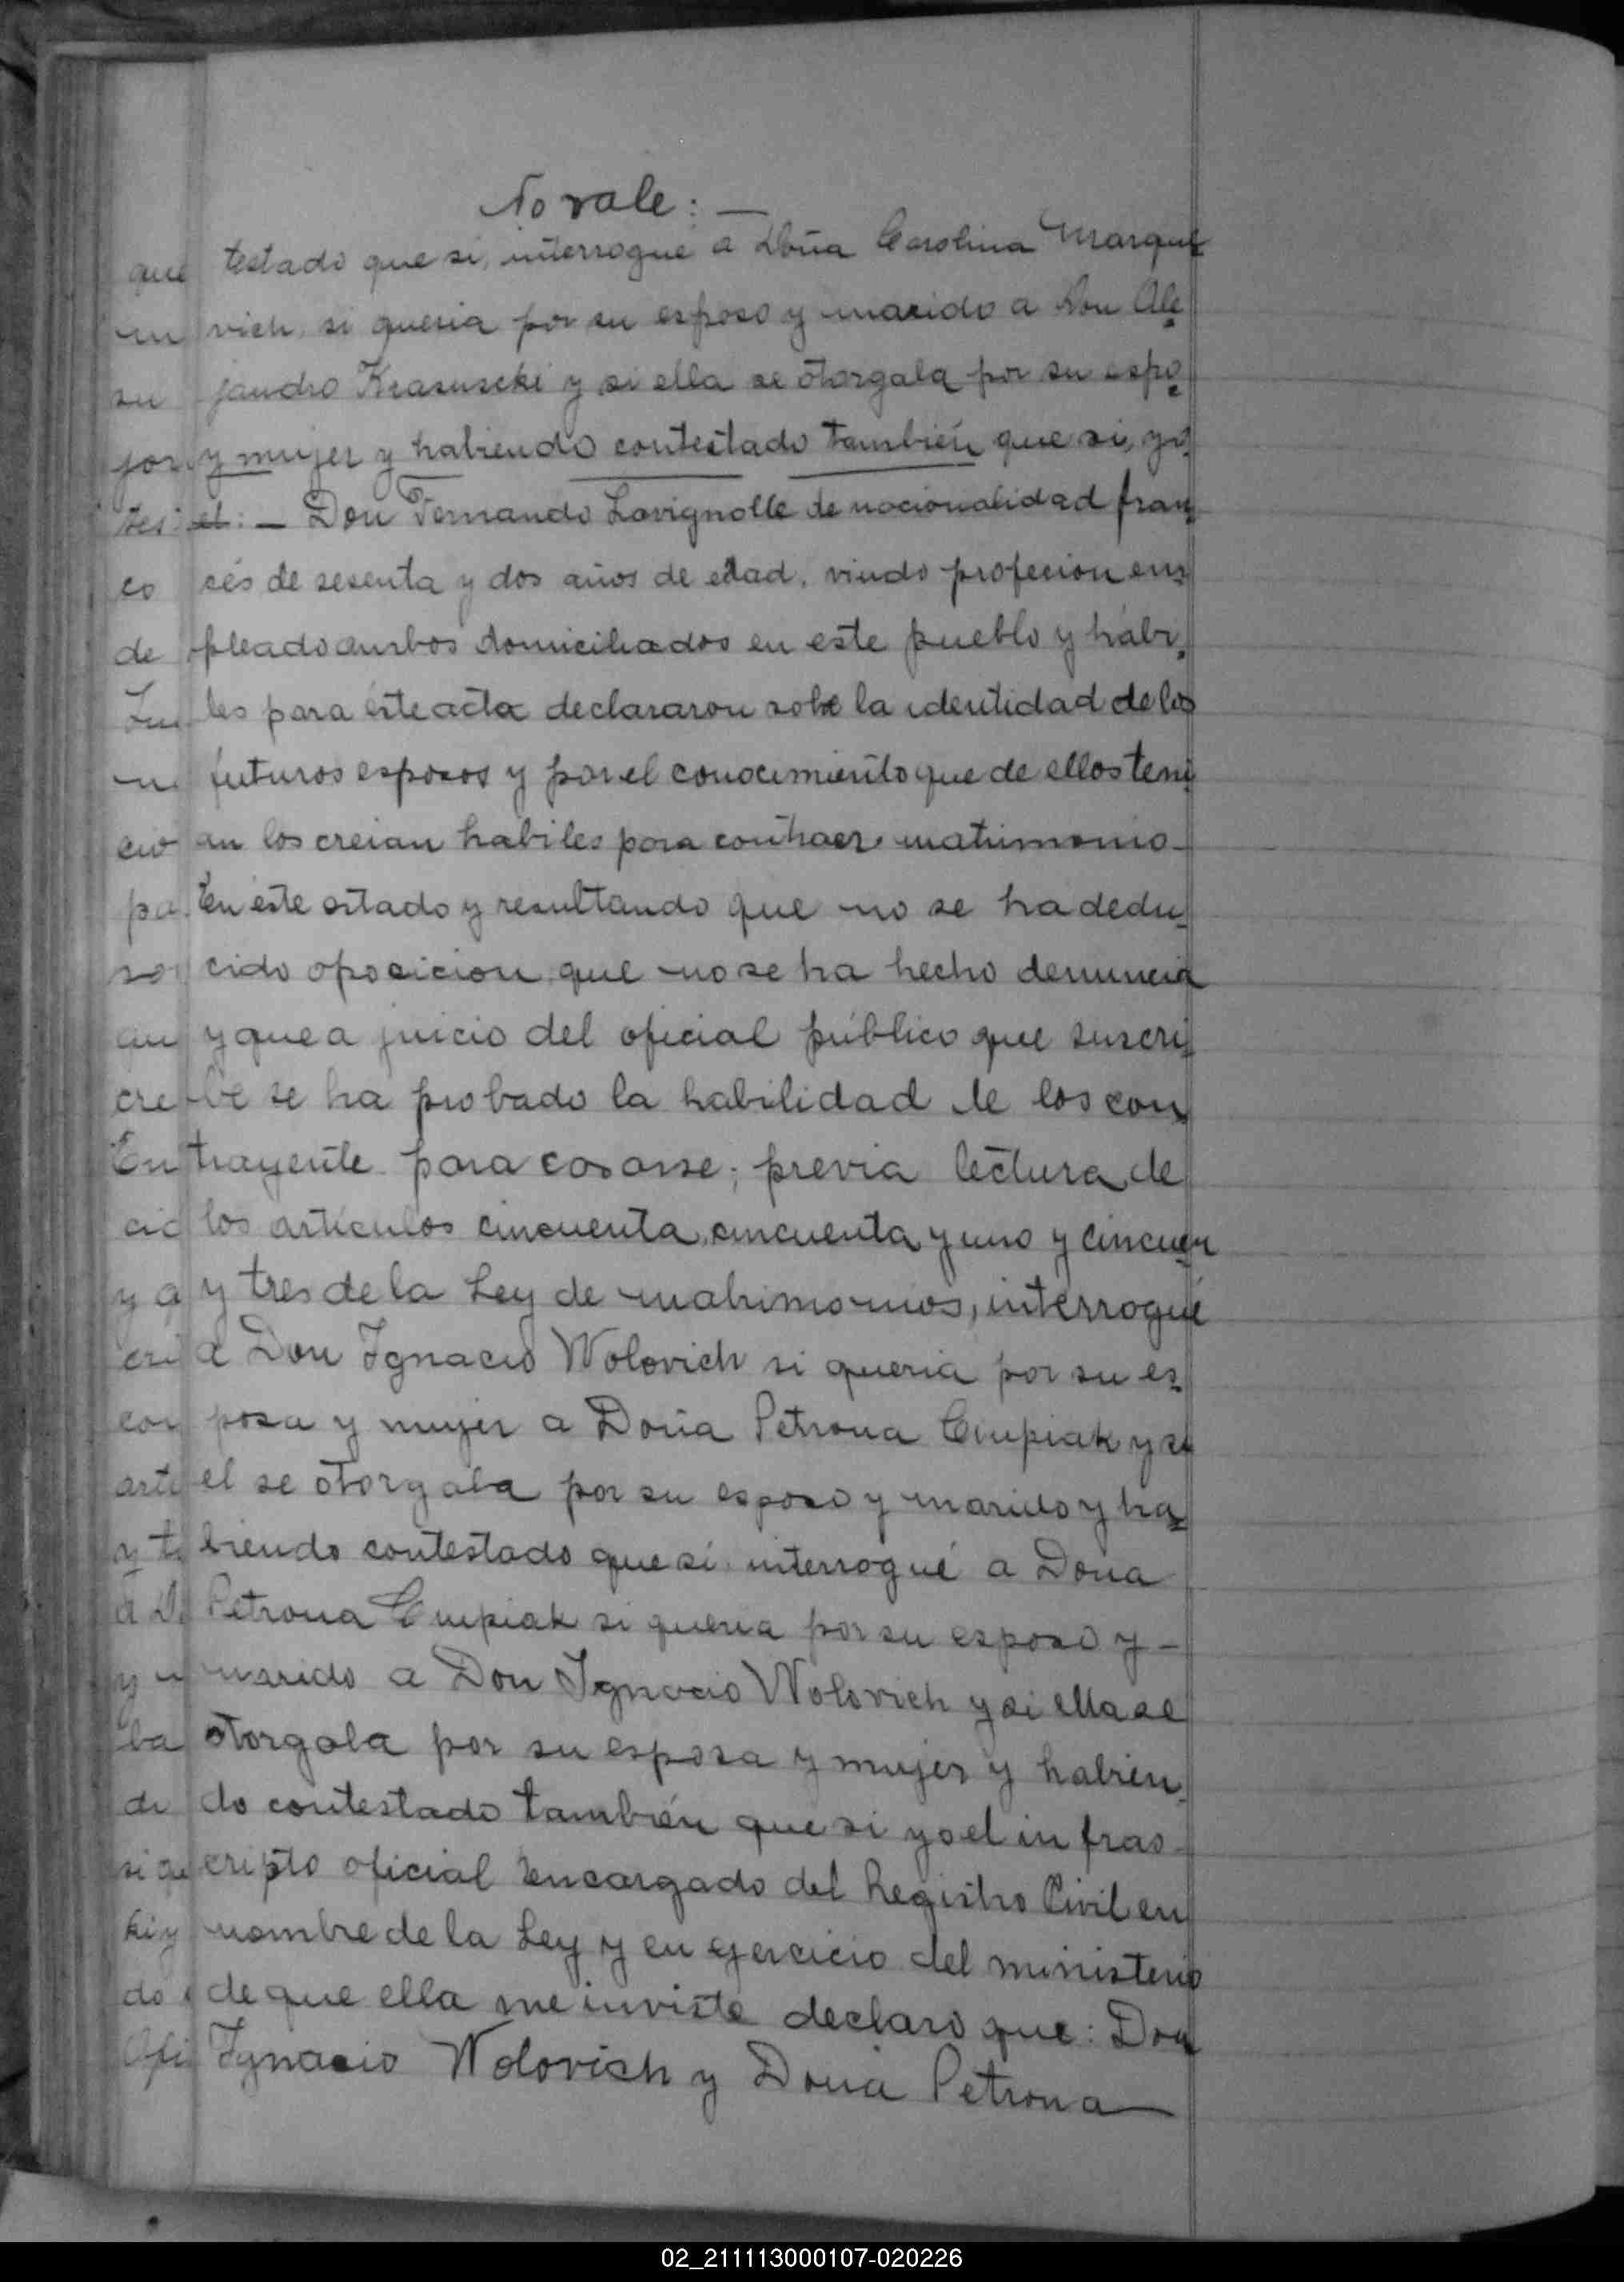 No vale: —
que testado que si, interrogué a Doña Carolina Marque
un vich, si queria por su esposo y marido a Don Ale
su jandro Krasuscki y si ella se otorgaba por su espo
y mujer y habiendo contestado también que si, yo
el: — Don Fernando Lavignolle de nacionalidad fran
co cés de sesenta y dos años de edad, viudo profesion em
de pleado ambos domiciliados en este pueblo y hábi
les para éste acta declararon sobre la identidad de los
futuros esposos y por el conocimiento que de ellos tení
cio an los creian habiles para contraer matrimonio —
pa En éste estado y resultando que no se ha dedu
so cido oposicion que no se ha hecho denuncia
an y que a juicio del oficial público que suscri
cre be se ha probado la habilidad de los con
En trayente para casarse; previa lectura de
cic los artículos cincuenta, cincuenta y uno y cincuen
y q y tres de la Ley de matrimonios, interrogué
cri a Don Ignacio Wolovich si queria por su es
con posa y mujer a Doña Petrona Cinpiak y si
arti el se otorgaba por su esposo y marido y ha
y t biendo contestado que sí interrogué a Doña
a D Petrona Cinpiak si queria por su esposo y —
y marido a Don Ignacio Wolovich y si ella se
ba otorgaba por su esposa y mujer y habien
di do contestado también que si yo el in fras
si que cripto oficial encargado del Registro Civil en
ki y nombre de la Ley y en ejercicio del ministerio
do de que ella me inviste declaro que: Don
Ofi Ignacio Wolovich y Doña Petrona —
02_211113000107-020226